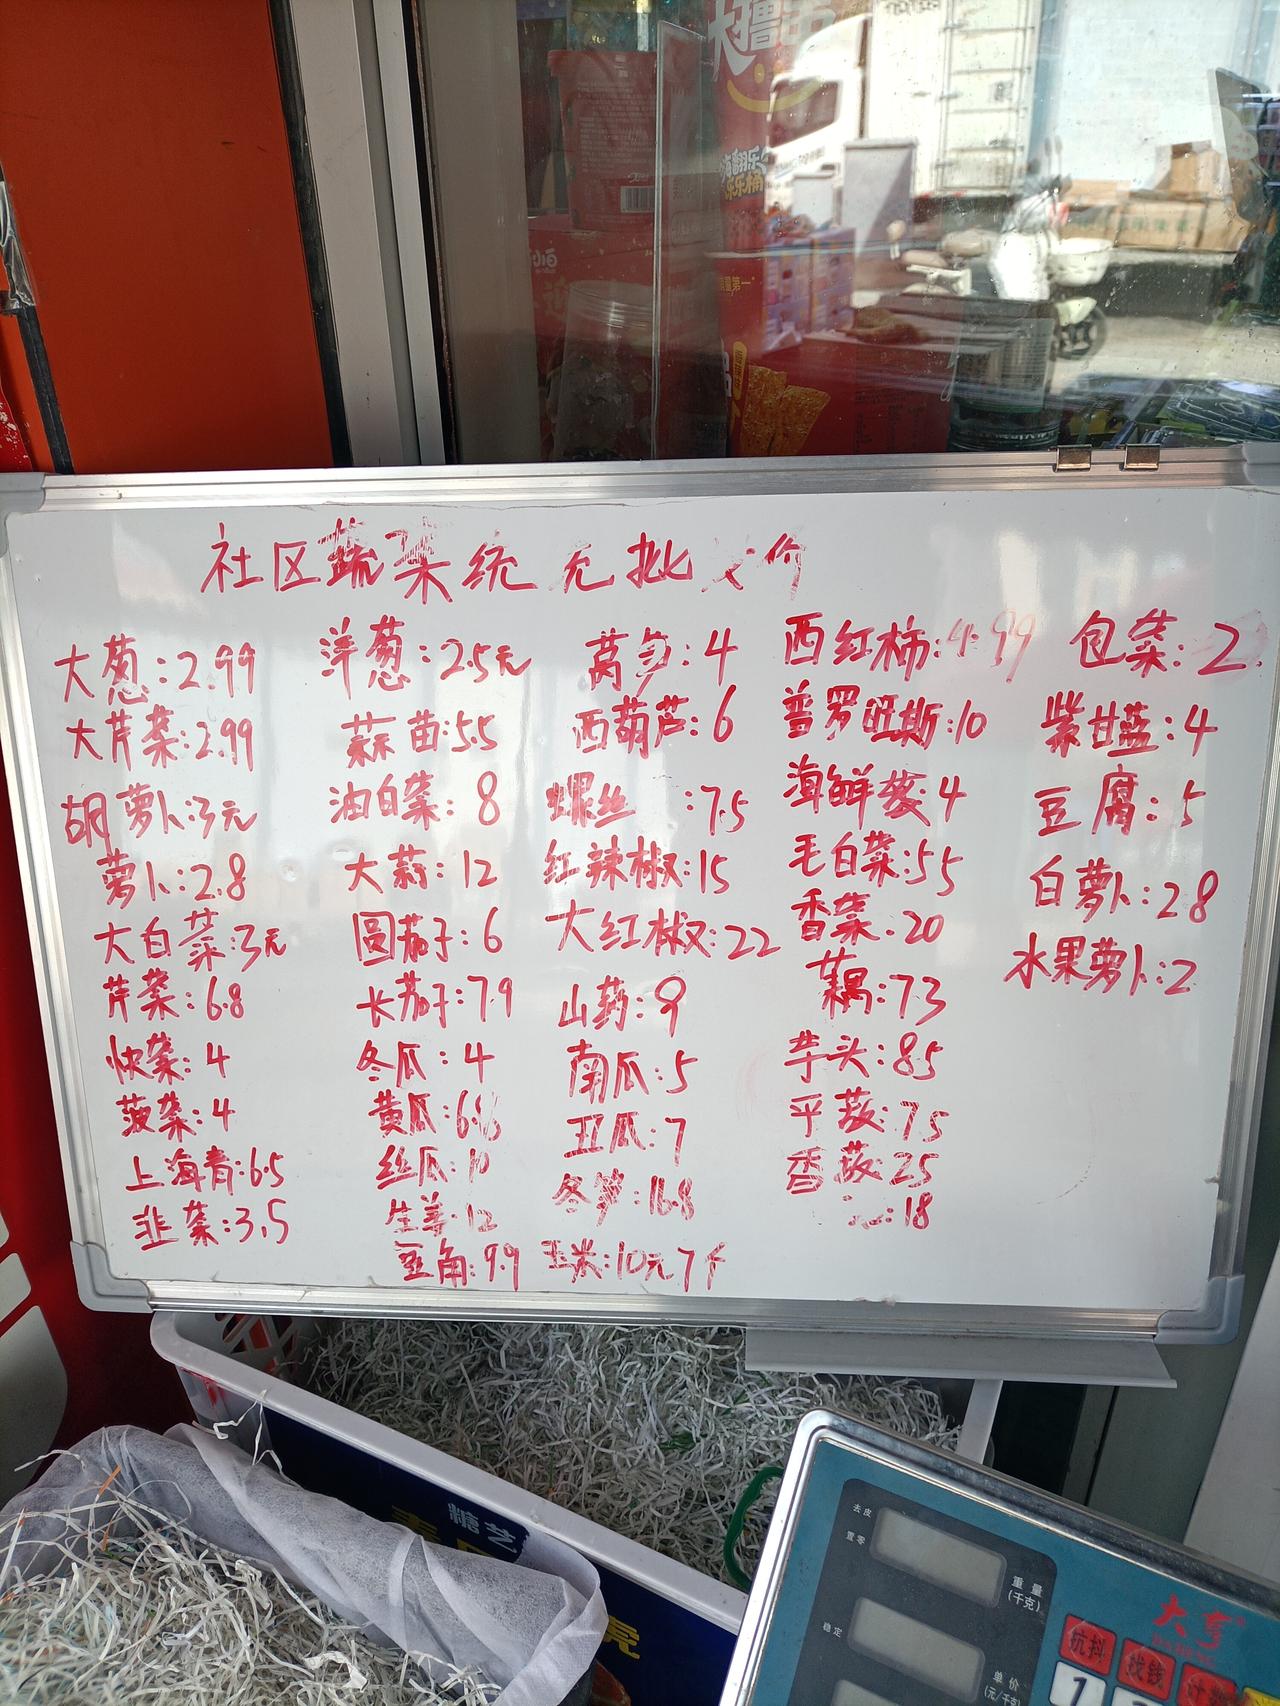 社区蔬菜统一元批发价
大葱:2.99
大芹菜:2.99
胡萝卜:3元
萝卜:2.8
大白菜:3元
芹菜:6.8
快菜:4
菠菜:4
上海青:6.5
韭菜:3.5
洋葱:2.5元
蒜苗:5.5
油白菜:8
大蒜:12
圆茄子:6
长茄子:7.9
冬瓜:4
黄瓜:6.8
丝瓜:10
生姜:12
豆角:9.9
莴笋:4
西葫芦:6
螺丝:7.5
红辣椒:15
大红椒:22
山药:9
南瓜:5
丑瓜:7
冬笋:16.8
玉米:10元7个
西红柿:4.99
普罗旺斯:10
海鲜菇:4
毛白菜:5.5
香菜:20
藕:7.3
芋头:8.5
平菇:7.5
香菇:25
:18
包菜:2
紫甘蓝:4
豆腐:5
白萝卜:2.8
水果萝卜:2
糖艺
去皮
置零
重量
(千克)
稳定
单价
(元/千克)
大亨
抗抖
找钱
1